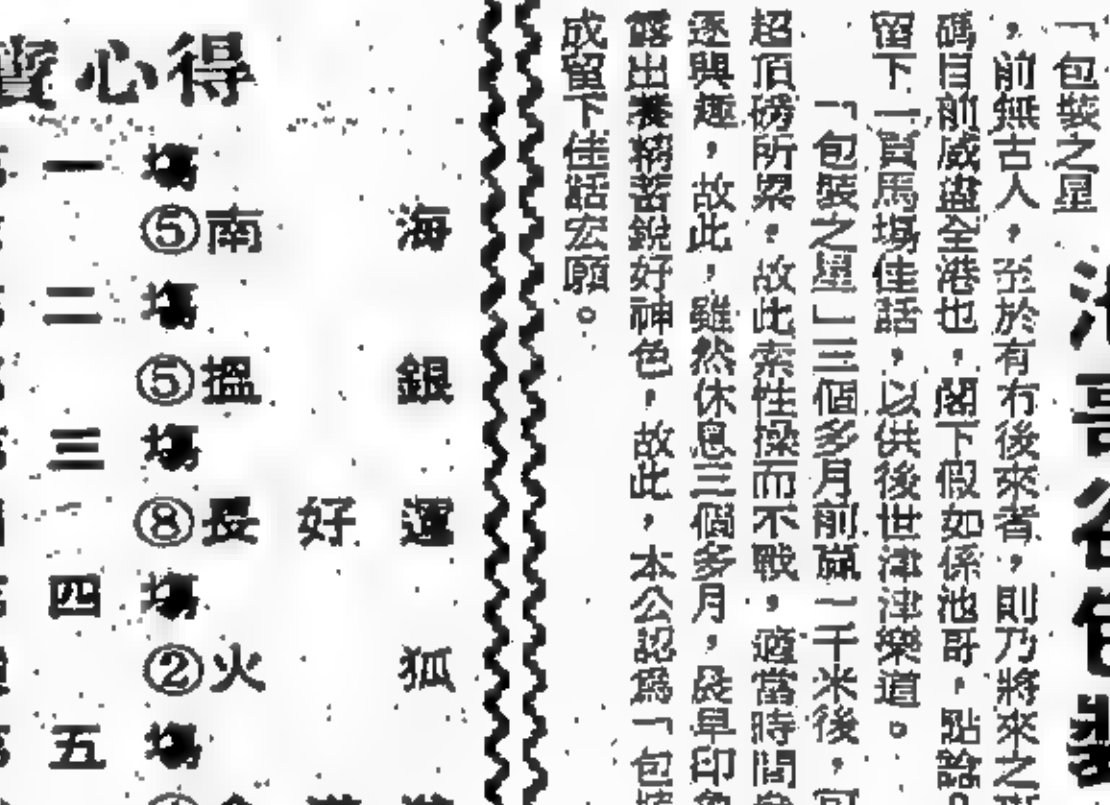 「包裝之星
，前無古人，至於有冇後來者，則乃將來之
碼目前威盡全港也，閣下假如係池哥，點
留下一頁馬場佳話，以供後世津津樂道。
「包裝之星」三個多月前贏一千米後，可
超頂磅所累，故此索性操而不戰，適當時間
逐興趣，故此，雖然休息三個多月，晨早印
露出養精蓄銳好神色，故此，本公認爲「包裝
成留下佳話宏願。
心得
一場
⑤南海
二場
⑤搵銀
三場
⑧長好運
四場
②火狐
五場